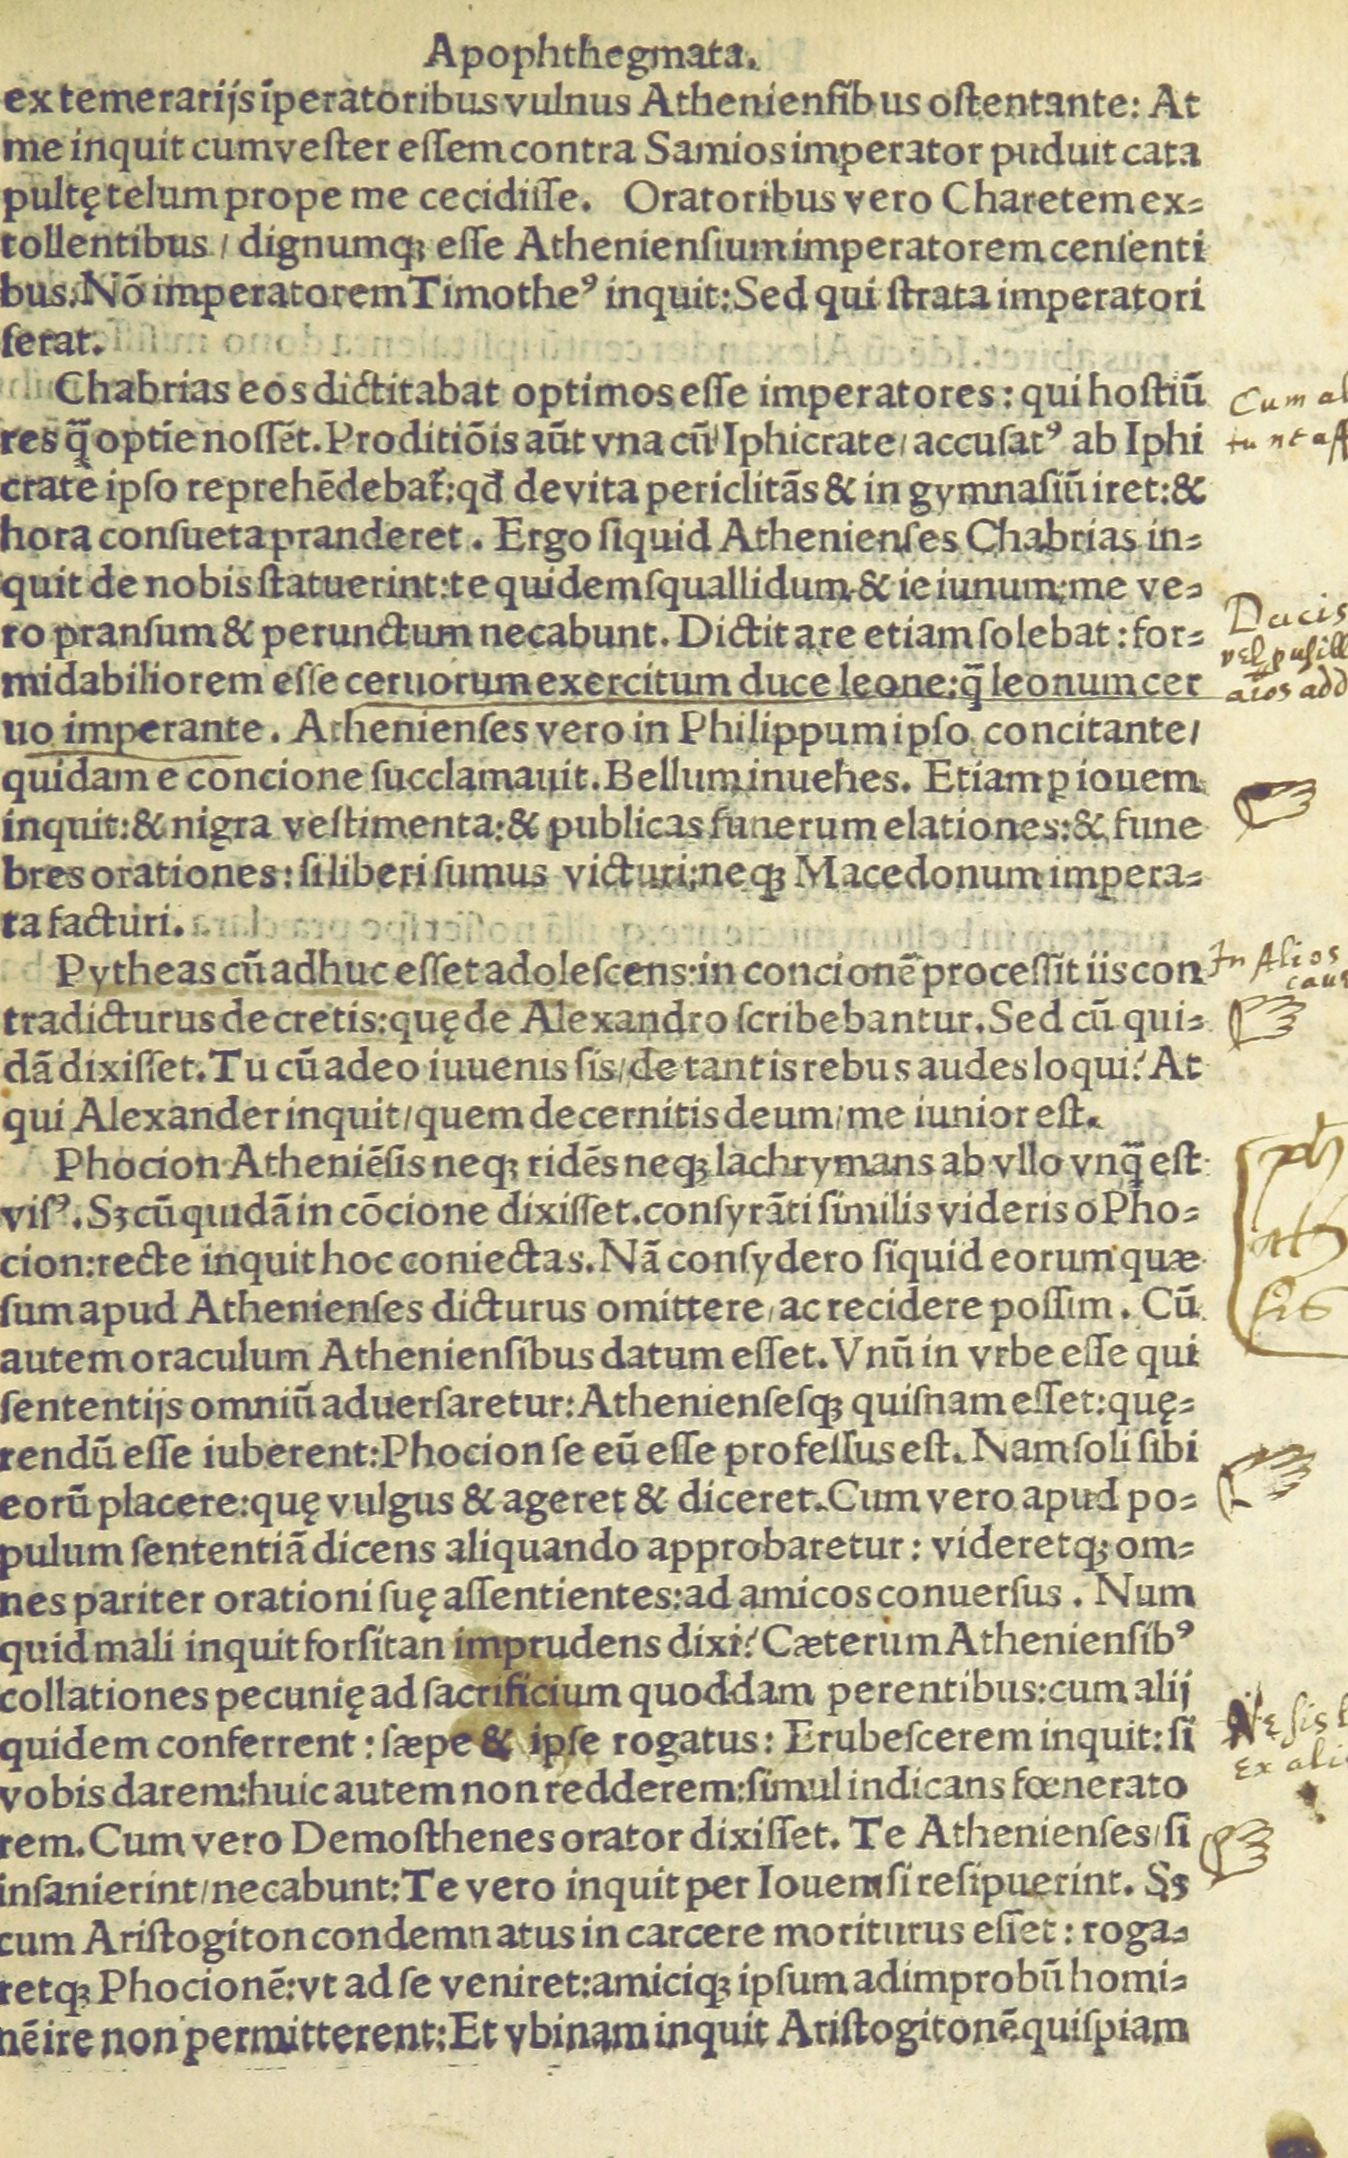 Apophthegmata.
ex temerarijs īperatoribus vulnus Atheniensibus ostentante: At
me inquit cum vester essem contra Samios imperator puduit cata
pultę telum prope me cecidisse. Oratoribus vero Charetem ex⸗
tollentibus / dignumq; esse Atheniensium imperatorem censenti
bus. Nō imperatorem Timotheꝰ inquit: Sed qui strata imperatori
ferat.
Chabrias eos dictitabat optimos esse imperatores: qui hostiū
res q̄ optie nossēt. Proditiōis aūt vna cū Iphicrate / accusatꝰ ab Iphi
crate ipso reprehēdebat̄: qđ de vita periclitās & in gymnasiū iret: &
hora consueta pranderet. Ergo siquid Athenienses Chabrias in⸗
quit de nobis statuerint: te quidem squallidum & ieiunum: me ve⸗
ro pransum & perunctum necabunt. Dictitare etiam solebat: for⸗
midabiliorem esse ceruorum exercitum duce leone: q̄ leonum cer
uo imperante. Athenienses vero in Philippum ipso concitante /
quidam e concione succlamauit. Bellum inuehes. Etiam ꝑ iouem
inquit: & nigra vestimenta: & publicas funerum elationes: & fune
bres orationes: si liberi sumus victuri: neq; Macedonum impera⸗
ta facturi.
Pytheas cū adhuc esset adolescens: in concionē processit iis con
tradicturus decretis: quę de Alexandro scribebantur. Sed cū qui⸗
dā dixisset. Tu cū adeo iuuenis sis / de tantis rebus audes loqui? At
qui Alexander inquit / quem decernitis deum / me iunior est.
Phocion Atheniēsis neq; ridēs neq; lachrymans ab vllo vnq̄ est
visꝰ. Sȝ cū quidā in cōcione dixisset. consyrāti similis videris o Pho⸗
cion: recte inquit hoc coniectas. Nā consydero siquid eorum quæ
sum apud Athenienses dicturus omittere / ac recidere possim. Cū
autem oraculum Atheniensibus datum esset. Vnū in vrbe esse qui
sententijs omniū aduersaretur: Atheniensesq; quisnam esset: quę⸗
rendū esse iuberent: Phocion se eū esse professus est. Nam soli sibi
eorū placere: quę vulgus & ageret & diceret. Cum vero apud po⸗
pulum sententiā dicens aliquando approbaretur: videretq; om⸗
nes pariter orationi suę assentientes: ad amicos conuersus. Num
quid mali inquit forsitan imprudens dixi? Cæterum Atheniensibꝰ
collationes pecunię ad sacrificium quoddam perentibus: cum alij
quidem conferrent: sæpe & ipse rogatus: Erubescerem inquit: si
vobis darem: huic autem non redderem: simul indicans fœnerato
rem. Cum vero Demosthenes orator dixisset. Te Athenienses / si
insanierint / necabunt: Te vero inquit per Iouem si resipuerint. Sȝ
cum Aristogiton condemnatus in carcere moriturus esset: roga⸗
retq; Phocionē: vt ad se veniret: amiciq; ipsum ad improbū homi⸗
nē ire non permitterent: Et vbinam inquit Aristogitonē quispiam
Cum
Ducis
In Alios